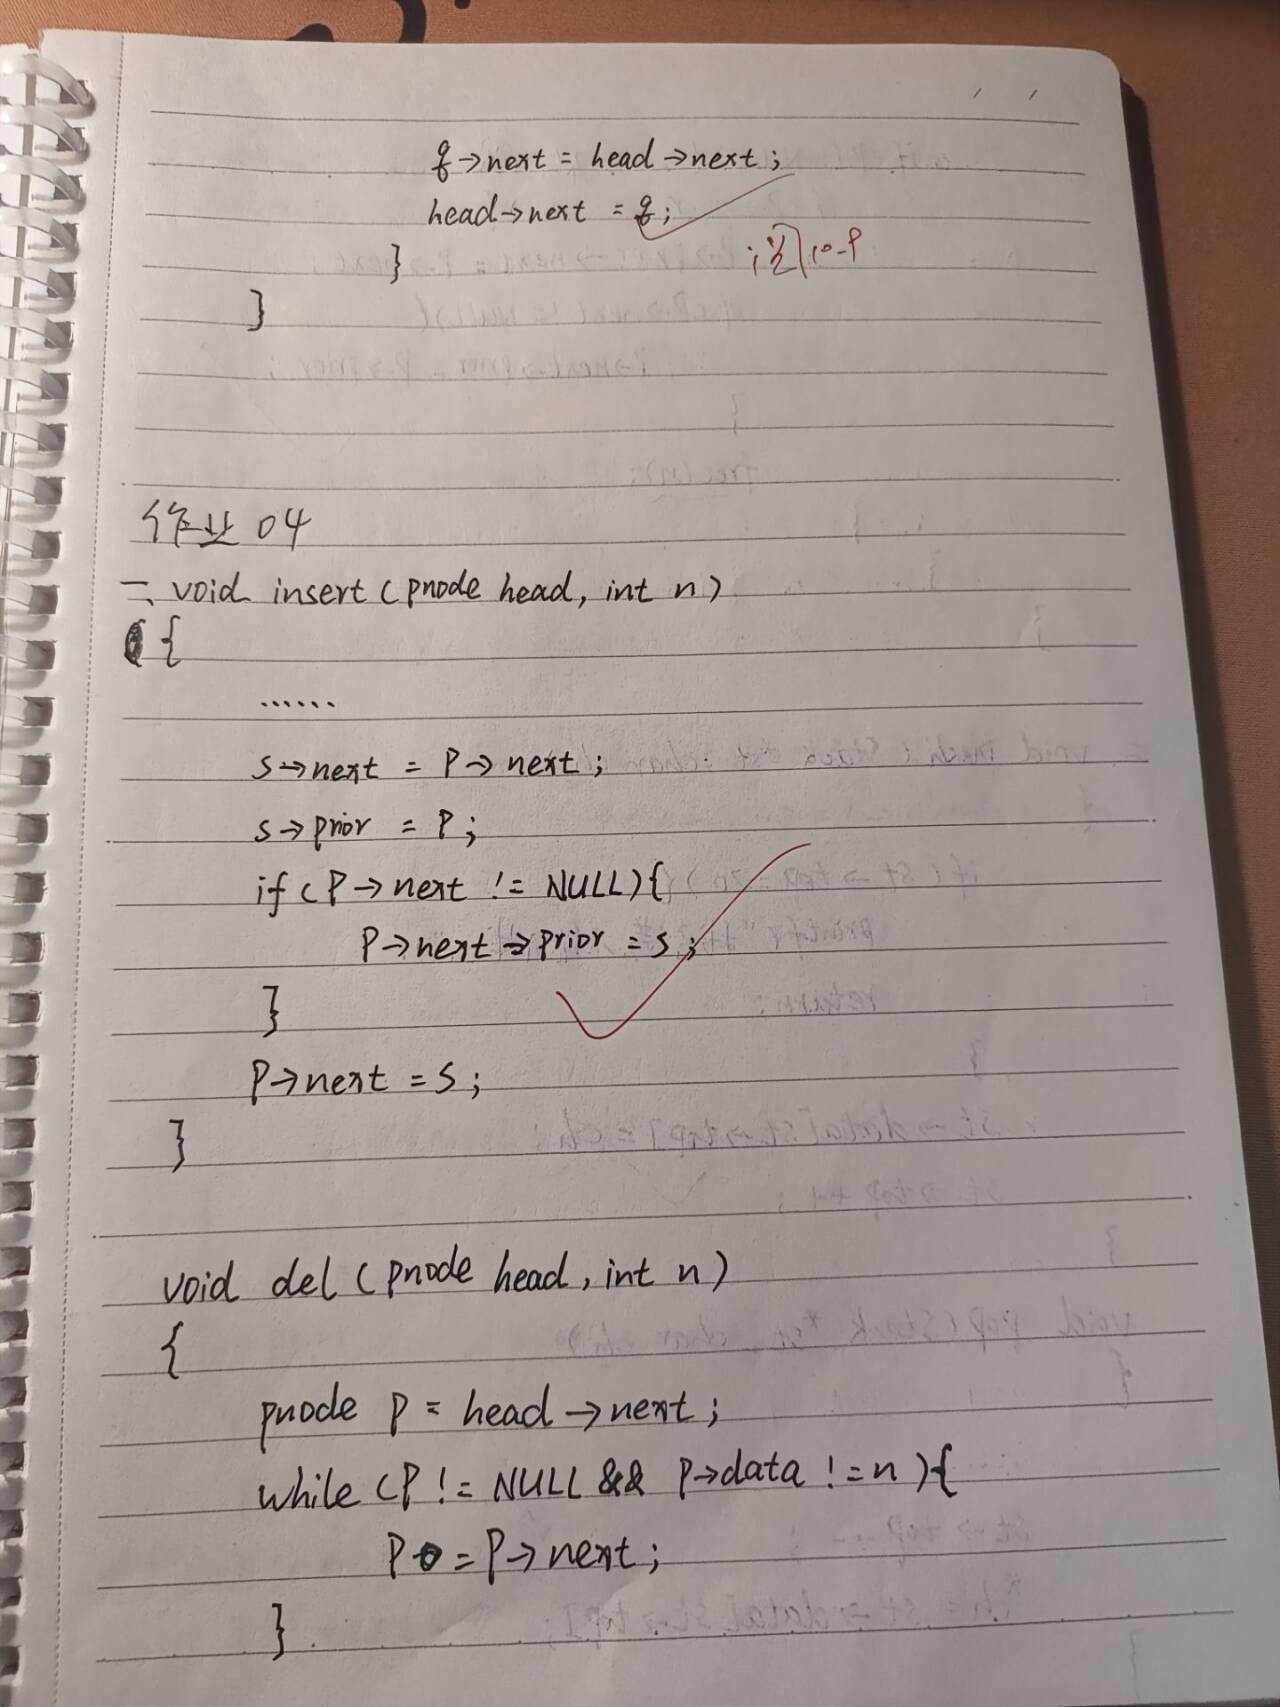 q→next = head→next;
head→next = q;
}
}
作业 04
二、void insert (pnode head, int n)
{
......
s→next = p→next;
s→prior = p;
if (p→next != NULL){
p→next→prior = s;
}
p→next = s;
}
void del (pnode head, int n)
{
pnode p = head→next;
while (p != NULL && p→data != n){
p = p→next;
}